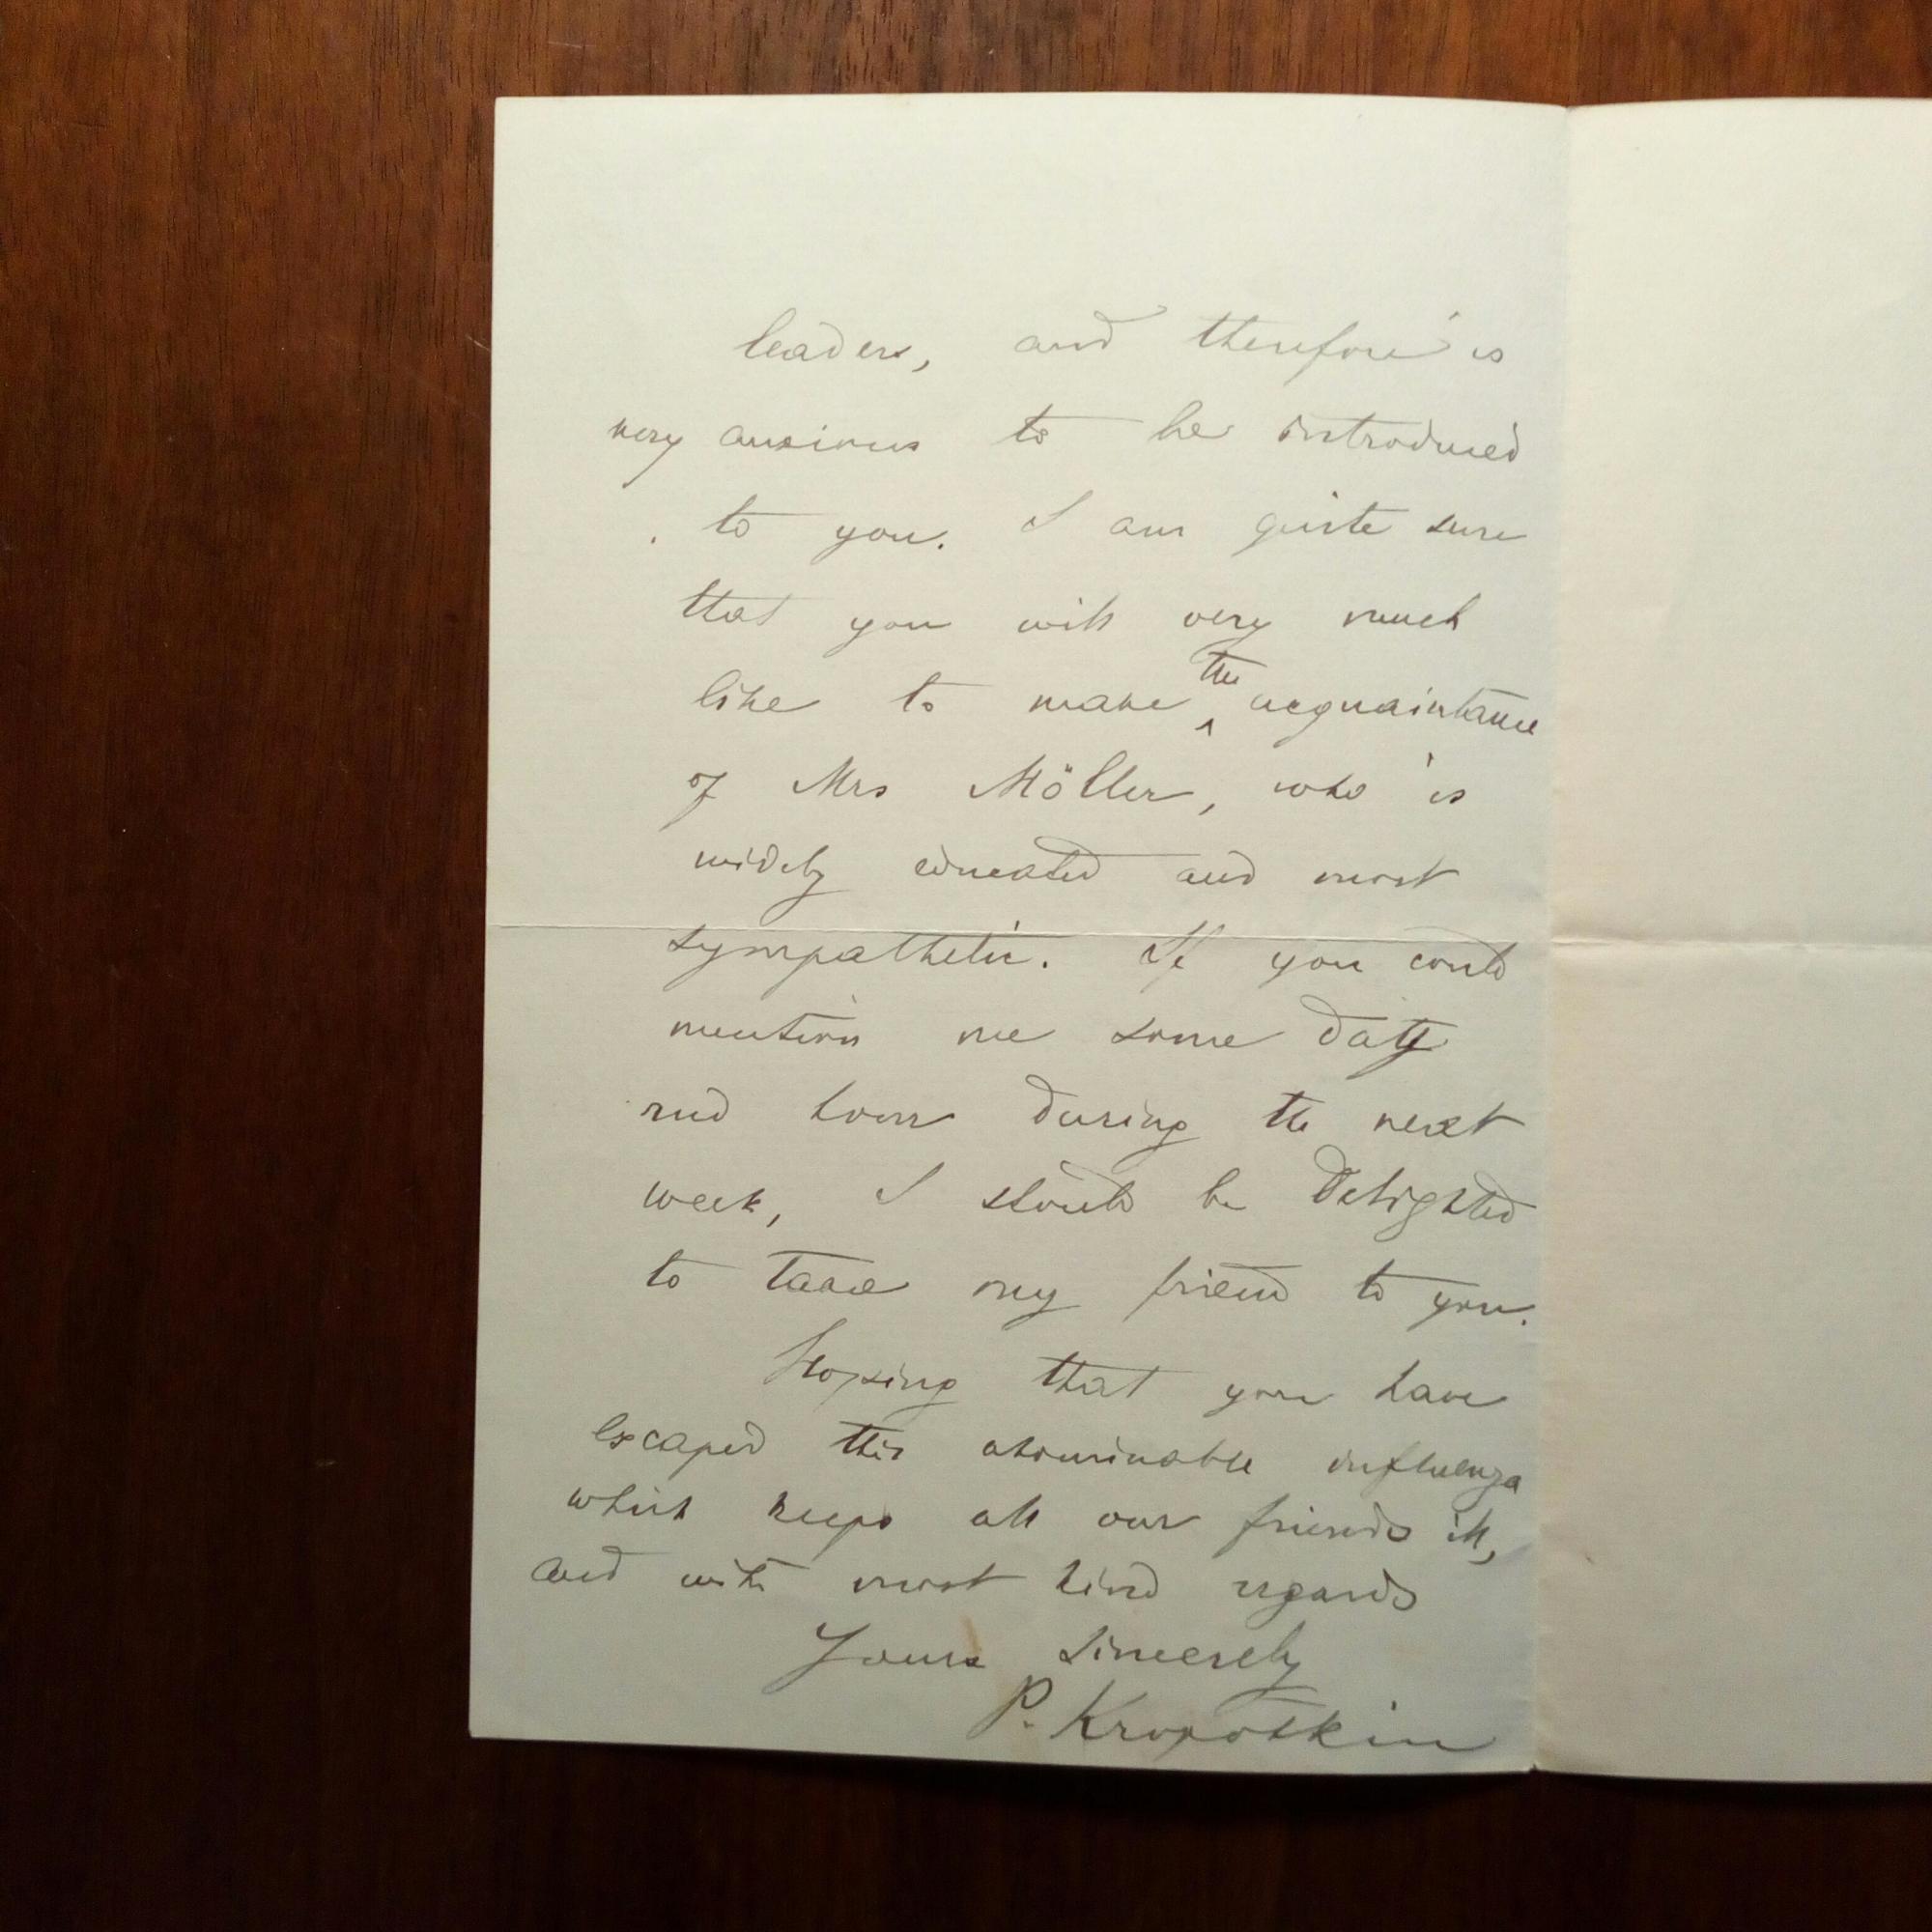 leaders, and therefore is
very anxious to be introduced
to you. I am quite sure
that you will very much
like to make the acquaintance
of Mrs Möller, who is
widely educated and most
sympathetic. If you could
mention me some day
and hour during the next
week, I should be delighted
to take my friend to you.
Hoping that you have
escaped this abominable influenza
which keeps all our friends ill,
and with most kind regards
Yours sincerely
P. Kropotkin